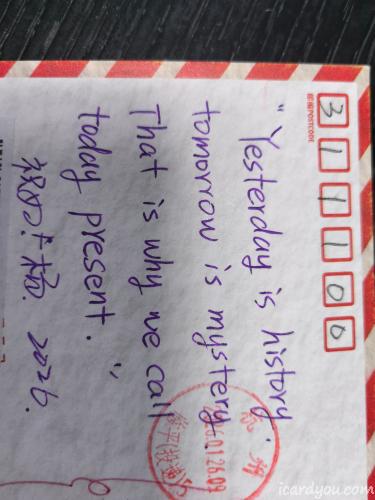 311100
邮编POSTCODE
"Yesterday is history.
tomorrow is mystery.
That is why we call
today present."
2026.
杭州
01.26.09
icardyou.com